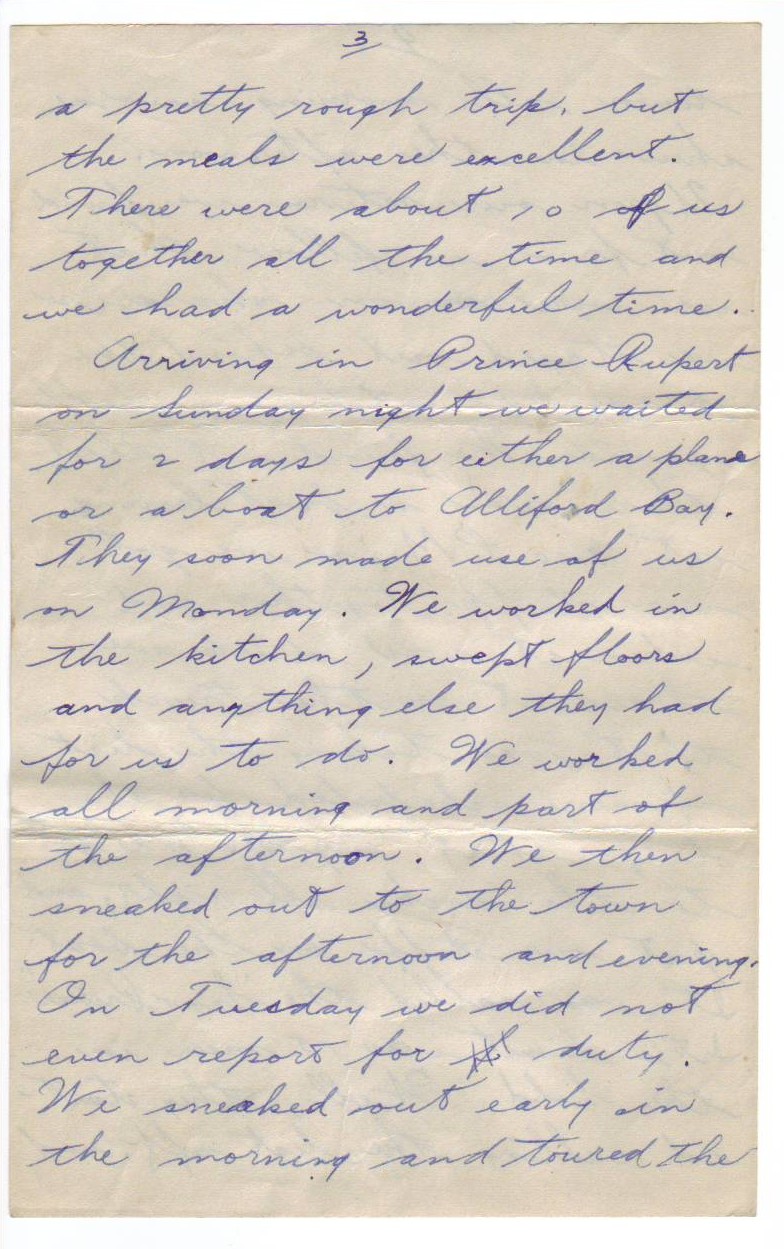 3
a pretty rough trip, but
the meals were excellent.
There were about 10 of us
together all the time and
we had a wonderful time.
Arriving in Prince Rupert
on Sunday night we waited
for 2 days for either a plane
or a boat to Alliford Bay.
They soon made use of us
on Monday. We worked in
the kitchen, swept floors
and anything else they had
for us to do. We worked
all morning and part of
the afternoon. We then
sneaked out to the town
for the afternoon and evening.
On Tuesday we did not
even report for duty.
We sneaked out early in
the morning and toured the